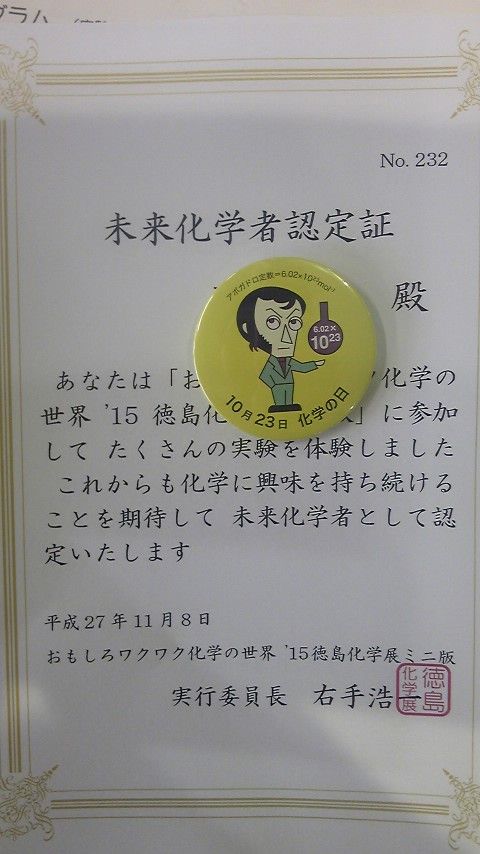 No. 232
未来化学者認定証
殿
アボガドロ定数=6.02×10²³mol⁻¹
6.02×
10²³
10月23日 化学の日
あなたは「お 化学の
世界 '15 徳島化 」に参加
して たくさんの実験を体験しました
これからも化学に興味を持ち続ける
ことを期待して 未来化学者として認
定いたします
平成27年11月8日
おもしろワクワク化学の世界 '15徳島化学展ミニ版
実行委員長 右手浩一
徳島
化学展